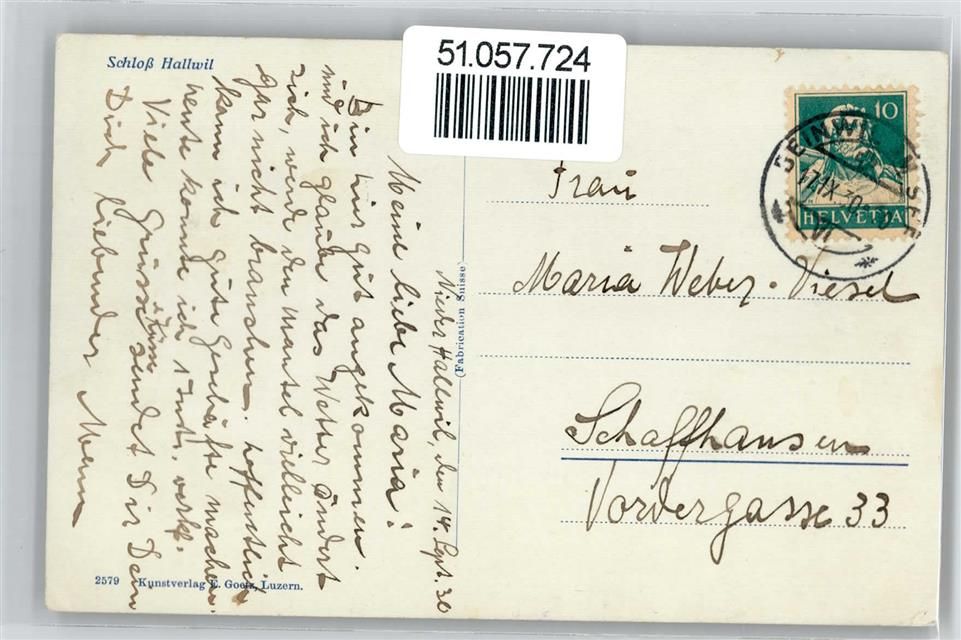 Schloß Hallwil
51.057.724
Nieder Hallwil, den 14. Sept. 30
Meine liebe Maria!
Bin hier gut angekommen.
und ich glaube das Wetter ändert
sich, werde den Mantel vielleicht
gar nicht brauchen. Hoffentlich
kann ich gute Geschäfte machen.
heute konnte ich 1 verk.
Viele Grüsse
sendet Dir Dein
Dich liebender Mann
(Fabrication Suisse)
2579 Kunstverlag E. Goetz, Luzern.
10
HELVETIA
BEINWIL A/SEE
17.IX.30
VI
Frau
Maria Weber-Viesel
Schaffhausen
Vordergasse 33